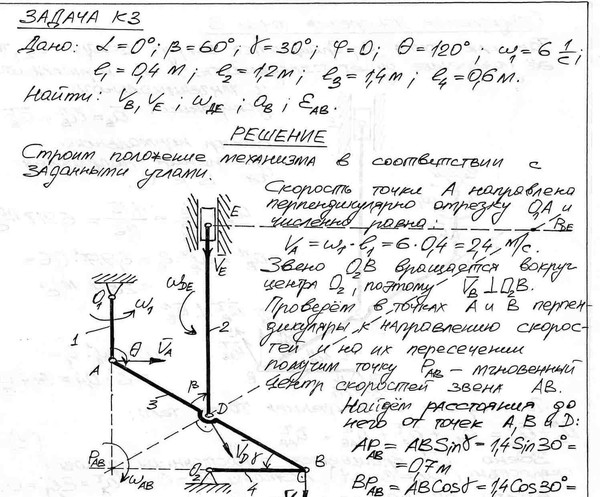 ЗАДАЧА К3
Дано: α=0°; β=60°; γ=30°; φ=0; θ=120°; ω₁=6 1/с;
ℓ₁=0,4 м; ℓ₂=1,2м; ℓ₃=1,4м; ℓ₄=0,6м.
Найти: V_B, V_E; ω_ДЕ; a_B; ε_AB.
РЕШЕНИЕ
Строим положение механизма в соответствии с
заданными углами.
Скорость точки А направлена
перпендикулярно отрезку O₁A и
численно равна:
V_A=ω₁·ℓ₁=6·0,4=2,4 м/с.
Звено O₂B вращается вокруг
центра O₂, поэтому V̄_B⊥O₂B.
Проведём в точках А и В перпен-
дикуляры к направлению скорос-
тей и на их пересечении
получим точку P_AB – мгновенный
центр скоростей звена АВ.
Найдём расстояния до
него от точек А, В и D:
AP_AB=ABSinγ=1,4Sin30°=
=0,7м
BP_AB=ABCosγ=1,4Cos30°=
E
P_DE
V̄_E
ω_DE
O₁
ω₁
1
2
A
θ
V̄_A
3
β
D
P_AB
ω_AB
O₂
V̄_D
γ
B
4